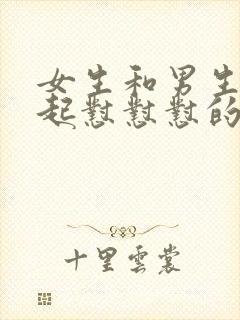 女生和男生
起懟懟懟的
十里雲裳